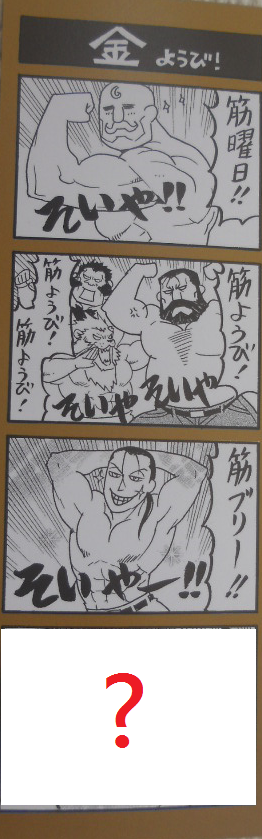 金ようび!
筋曜日!!
そいや!!
筋ようび!
筋ようび!
筋ようび!
そいや
そいや
筋ブリー!!
そいやー!!
?